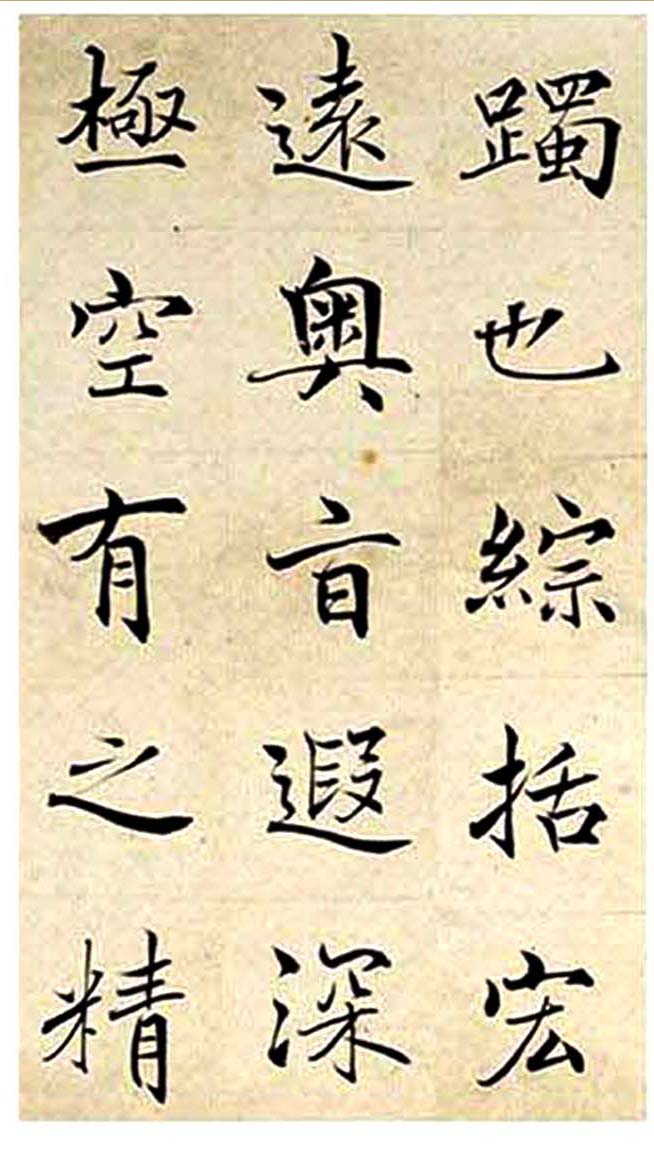 躅也綜括宏
遠奧旨遐深
極空有之精